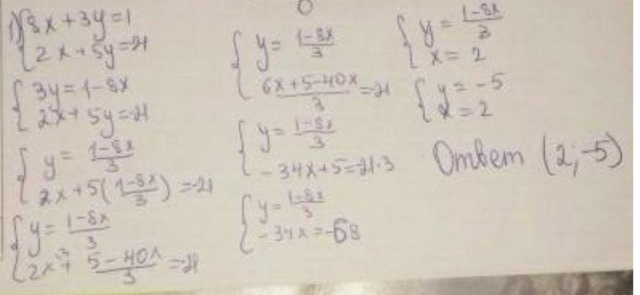 1) { 8x + 3y = 1
2x + 5y = -21
{ 3y = 1 - 8x
2x + 5y = -21
{ y = (1-8x)/3
2x + 5((1-8x)/3) = -21
{ y = (1-8x)/3
2x + (5-40x)/3 = -21
{ y = (1-8x)/3
(6x+5-40x)/3 = -21
{ y = (1-8x)/3
-34x+5=-21·3
{ y = (1-8x)/3
-34x=-68
{ y = (1-8x)/3
x = 2
{ y = -5
x = 2
Ответ (2;-5)